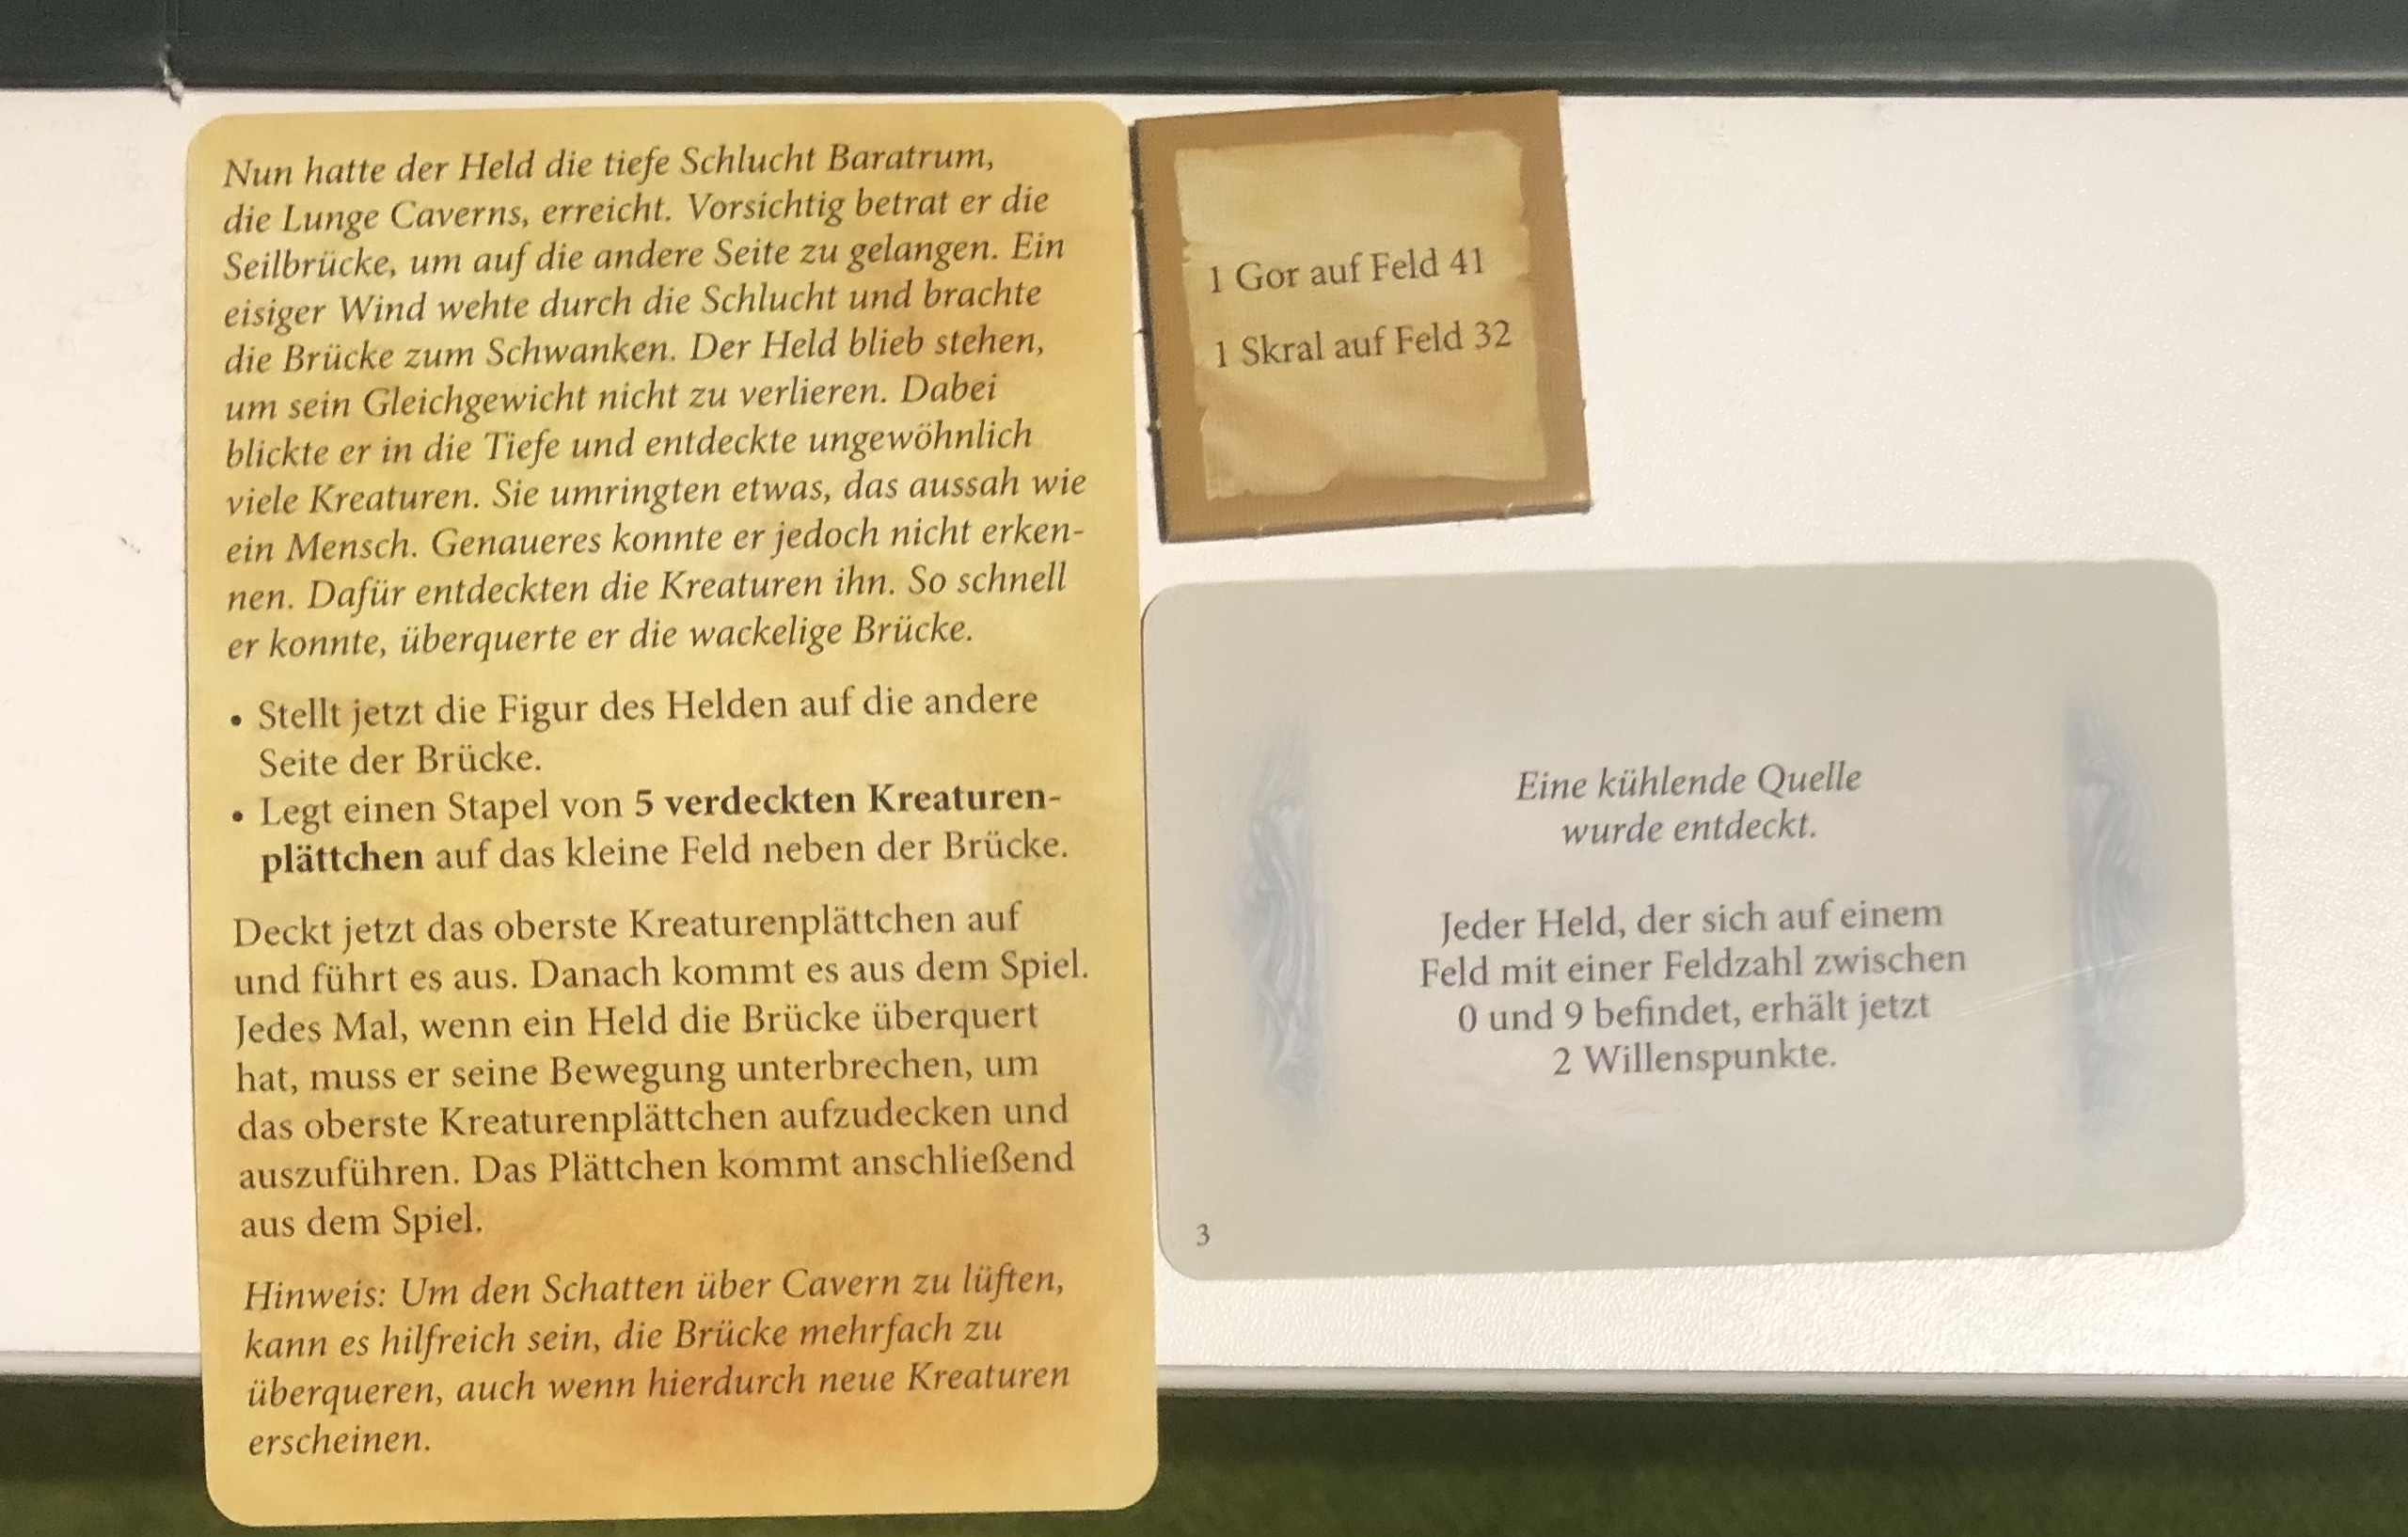 Nun hatte der Held die tiefe Schlucht Baratrum,
die Lunge Caverns, erreicht. Vorsichtig betrat er die
Seilbrücke, um auf die andere Seite zu gelangen. Ein
eisiger Wind wehte durch die Schlucht und brachte
die Brücke zum Schwanken. Der Held blieb stehen,
um sein Gleichgewicht nicht zu verlieren. Dabei
blickte er in die Tiefe und entdeckte ungewöhnlich
viele Kreaturen. Sie umringten etwas, das aussah wie
ein Mensch. Genaueres konnte er jedoch nicht erken-
nen. Dafür entdeckten die Kreaturen ihn. So schnell
er konnte, überquerte er die wackelige Brücke.
• Stellt jetzt die Figur des Helden auf die andere
Seite der Brücke.
• Legt einen Stapel von 5 verdeckten Kreaturen-
plättchen auf das kleine Feld neben der Brücke.
Deckt jetzt das oberste Kreaturenplättchen auf
und führt es aus. Danach kommt es aus dem Spiel.
Jedes Mal, wenn ein Held die Brücke überquert
hat, muss er seine Bewegung unterbrechen, um
das oberste Kreaturenplättchen aufzudecken und
auszuführen. Das Plättchen kommt anschließend
aus dem Spiel.
Hinweis: Um den Schatten über Cavern zu lüften,
kann es hilfreich sein, die Brücke mehrfach zu
überqueren, auch wenn hierdurch neue Kreaturen
erscheinen.
1 Gor auf Feld 41
1 Skral auf Feld 32
Eine kühlende Quelle
wurde entdeckt.
Jeder Held, der sich auf einem
Feld mit einer Feldzahl zwischen
0 und 9 befindet, erhält jetzt
2 Willenspunkte.
3